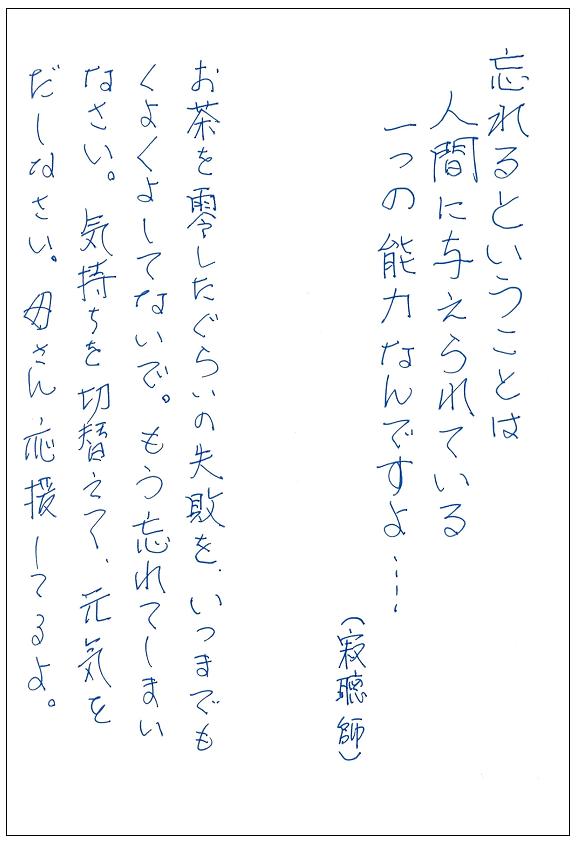 忘れるということは
人間に与えられている
一つの能力なんですよ…
(寂聴師)
お茶を零したぐらいの失敗を、いつまでも
くよくよしてないで。もう忘れてしまい
なさい。気持ちを切替えて、元気を
だしなさい。母さん応援してるよ。